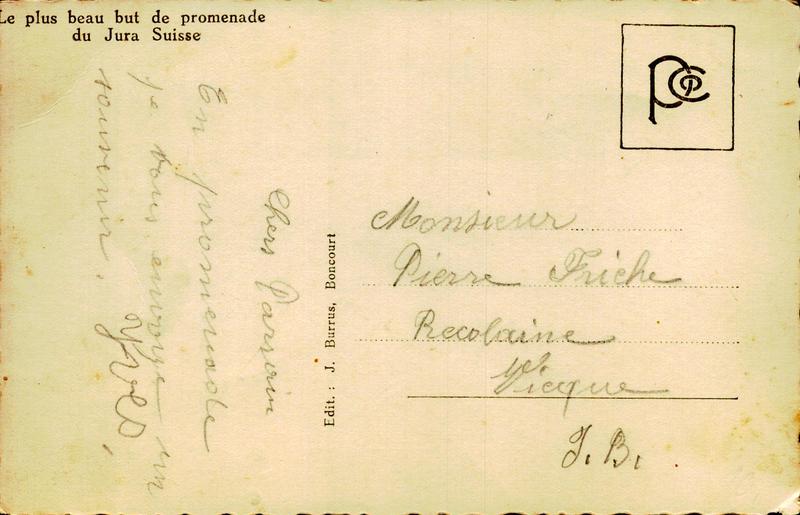 Le plus beau but de promenade
du Jura Suisse
PCP
Chers Parrain
En promenade
je vous envoye un
souvenir.
Yves.
Edit. : J. Burrus, Boncourt
Monsieur
Pierre Friche
Recolaine
Vicque
J. B.